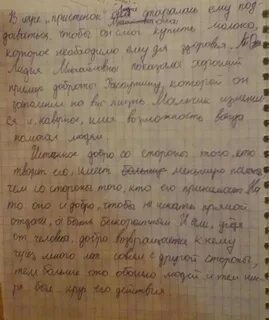 В игре „пристенок" она старалась ему под
даваться, чтобы он смог купить молоко,
которое необходимо ему для здоровья.
Лидия Михайловна показала хороший
пример доброты Распутину, который он
запомнил на всю жизнь. Мальчик изменил
ся и, наверное, имел возможность всегда
помогал людям.
Истинное добро со стороны того, кто
творит его, имеет меньшую память,
чем со стороны того, кто его принимает. На
то оно и добро, чтобы не искать прямой
отдачи, а быть бескорыстным. И если, уйдя
от человека, добро возвращается к нему
через много лет совсем с другой стороны,
тем больше оно обошло людей и тем шире
был круг его действия.